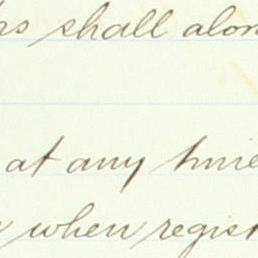 shall alon
at any time
when regist